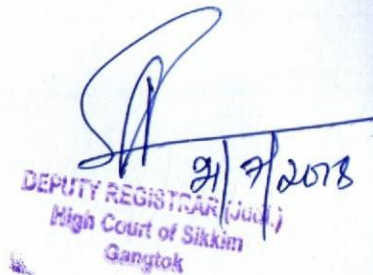 2018
DEPUTY REGISTRAR (Judl.)
High Court of Sikkim
Gangtok